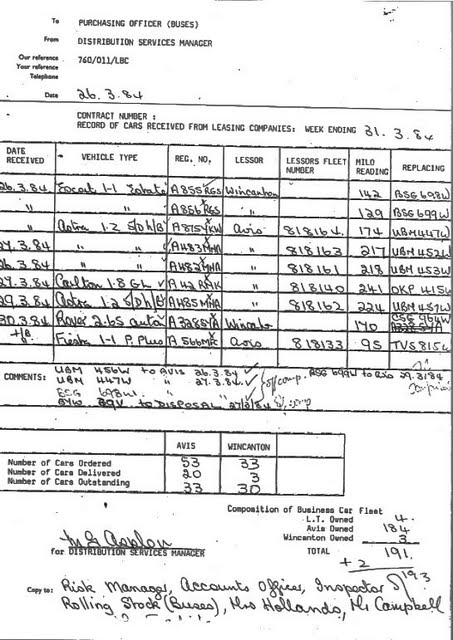 To PURCHASING OFFICER (BUSES)
From DISTRIBUTION SERVICES MANAGER
Our reference 760/011/LBC
Your reference
Telephone
Date 26.3.84
CONTRACT NUMBER :
RECORD OF CARS RECEIVED FROM LEASING COMPANIES: WEEK ENDING 31.3.84
DATE RECEIVED VEHICLE TYPE REG. NO. LESSOR LESSORS FLEET NUMBER MILO READING REPLACING
26.3.84 Escort 1-1 Estate A855 RGS Wincanton 142 BSG 698W
" " A856 RGS " 129 BSG 699W
" Astra 1.2 S/D H/B Avis 818164 174 UBM 447W
27.3.84 " A483 MHA " 818163 217 UBM 452W
26.3.84 " A482 MHA " 818161 218 UBM 453W
27.3.84 Carlton 1.8 GL " 818140 241 OKP 415W
29.3.84 Astra 1.2 S/D H/B A485 MHA " 818162 224 UBM 457W
30.3.84 Rover 2.6S auto Wincanton 170
Fiesta 1-1 P. Plus A 566 Avis 818133 95 TVS 815W
COMMENTS: UBM 456W to AVIS 26.3.84
UBM 447W " 27.3.84 BSG 699W to 29.3.84
698W
to DISPOSAL 27/3/84
AVIS WINCANTON
Number of Cars Ordered 53 33
Number of Cars Delivered 20 3
Number of Cars Outstanding 33 30
Composition of Business Car Fleet
L.T. Owned 4
Avis Owned 184
Wincanton Owned 3
TOTAL 191
+2 193
for DISTRIBUTION SERVICES MANAGER
Copy to: Risk Manager, Accounts Officer, Inspector of
Rolling Stock (Buses), Mrs Hollands, Mr Campbell